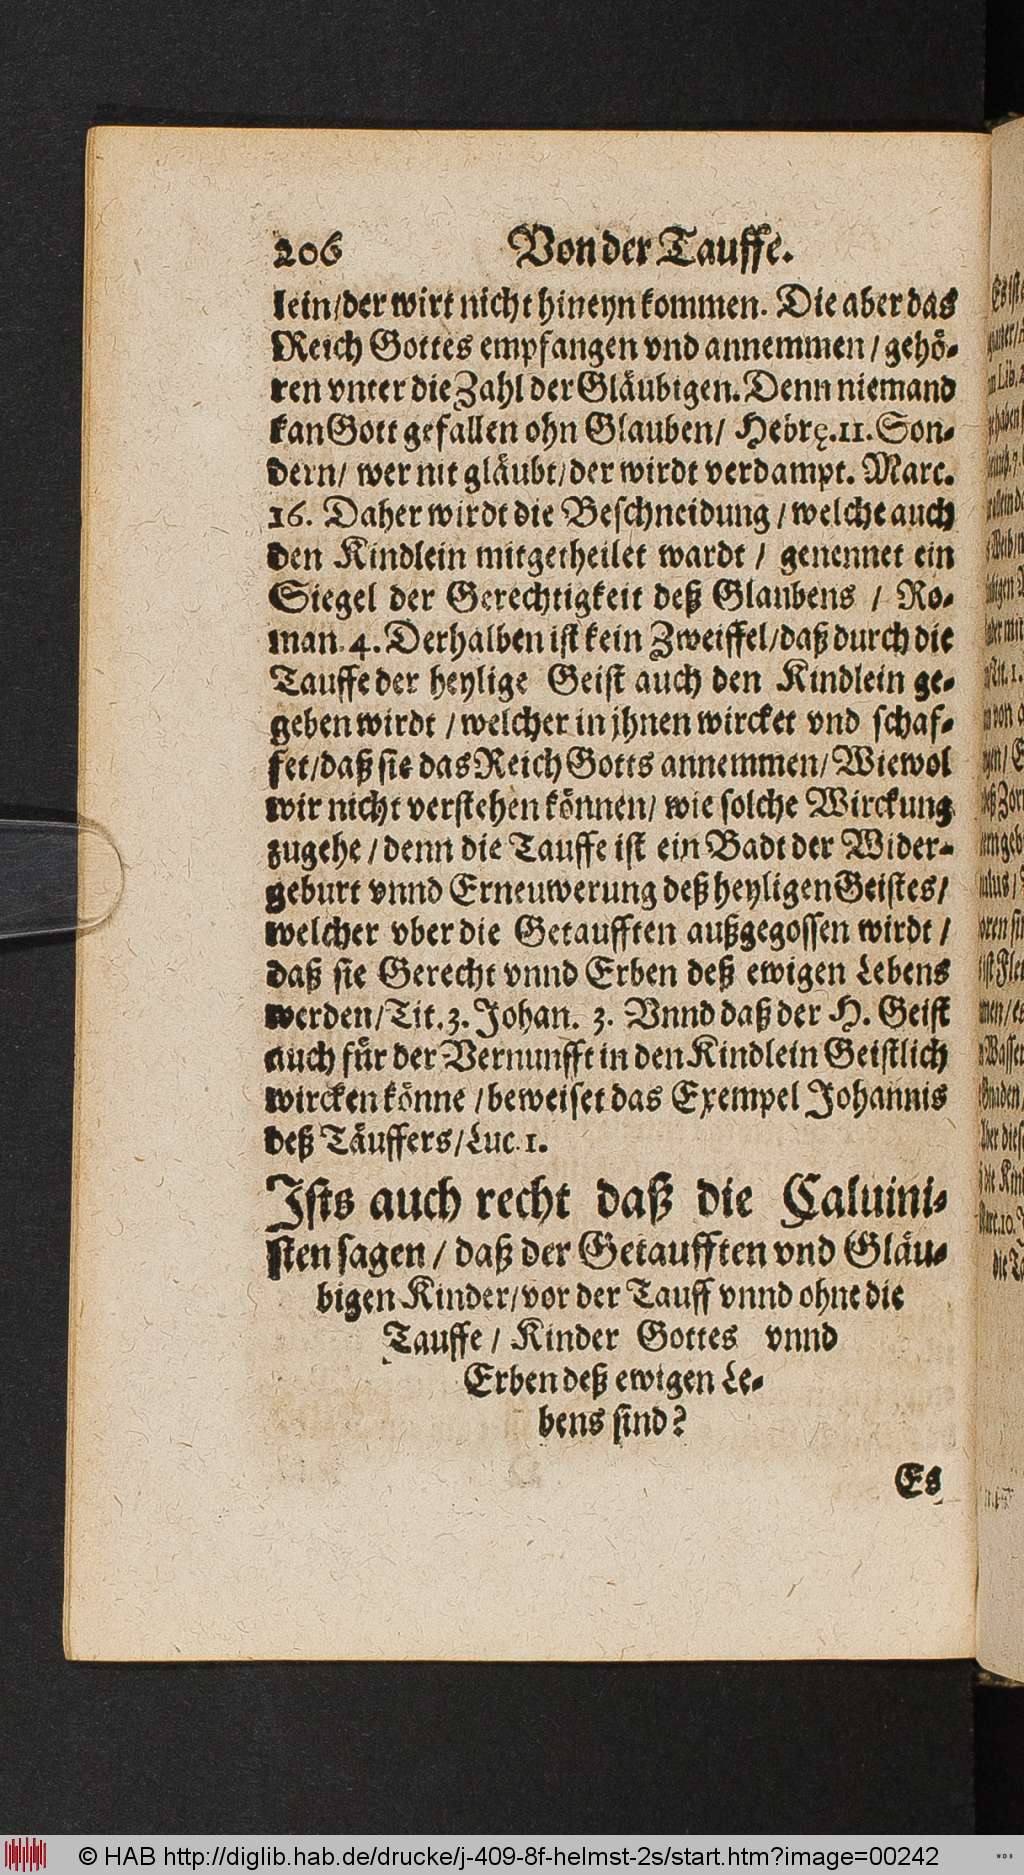 206 Von der Tauffe.
lein/der wirt nicht hineyn kommen. Die aber das
Reich Gottes empfangen vnd annemmen / gehö-
ren vnter die Zahl der Gläubigen. Denn niemand
kan Gott gefallen ohn Glauben/ Hebrę. 11. Son-
dern/ wer nit gläubt/der wirdt verdampt. Marc.
16. Daher wirdt die Beschneidung / welche auch
den Kindlein mitgetheilet wardt / genennet ein
Siegel der Gerechtigkeit deß Glaubens / Ro-
man. 4. Derhalben ist kein Zweiffel/daß durch die
Tauffe der heylige Geist auch den Kindlein ge-
geben wirdt / welcher in jhnen wircket vnd schaf-
fet/daß sie das Reich Gotts annemmen/ Wiewol
wir nicht verstehen können/ wie solche Wirckung
zugehe / denn die Tauffe ist ein Badt der Wider-
geburt vnnd Erneuwerung deß heyligen Geistes/
welcher vber die Getaufften außgegossen wirdt /
daß sie Gerecht vnnd Erben deß ewigen Lebens
werden/Tit. 3. Johan. 3. Vnnd daß der H. Geist
auch für der Vernunfft in den Kindlein Geistlich
wircken könne / beweiset das Exempel Johannis
deß Täuffers/Luc. 1.
Ists auch recht daß die Caluini-
sten sagen / daß der Getaufften vnd Gläu-
bigen Kinder/vor der Tauff vnnd ohne die
Tauffe / Kinder Gottes vnnd
Erben deß ewigen Le-
bens sind?
Es
© HAB http://diglib.hab.de/drucke/j-409-8f-helmst-2s/start.htm?image=00242